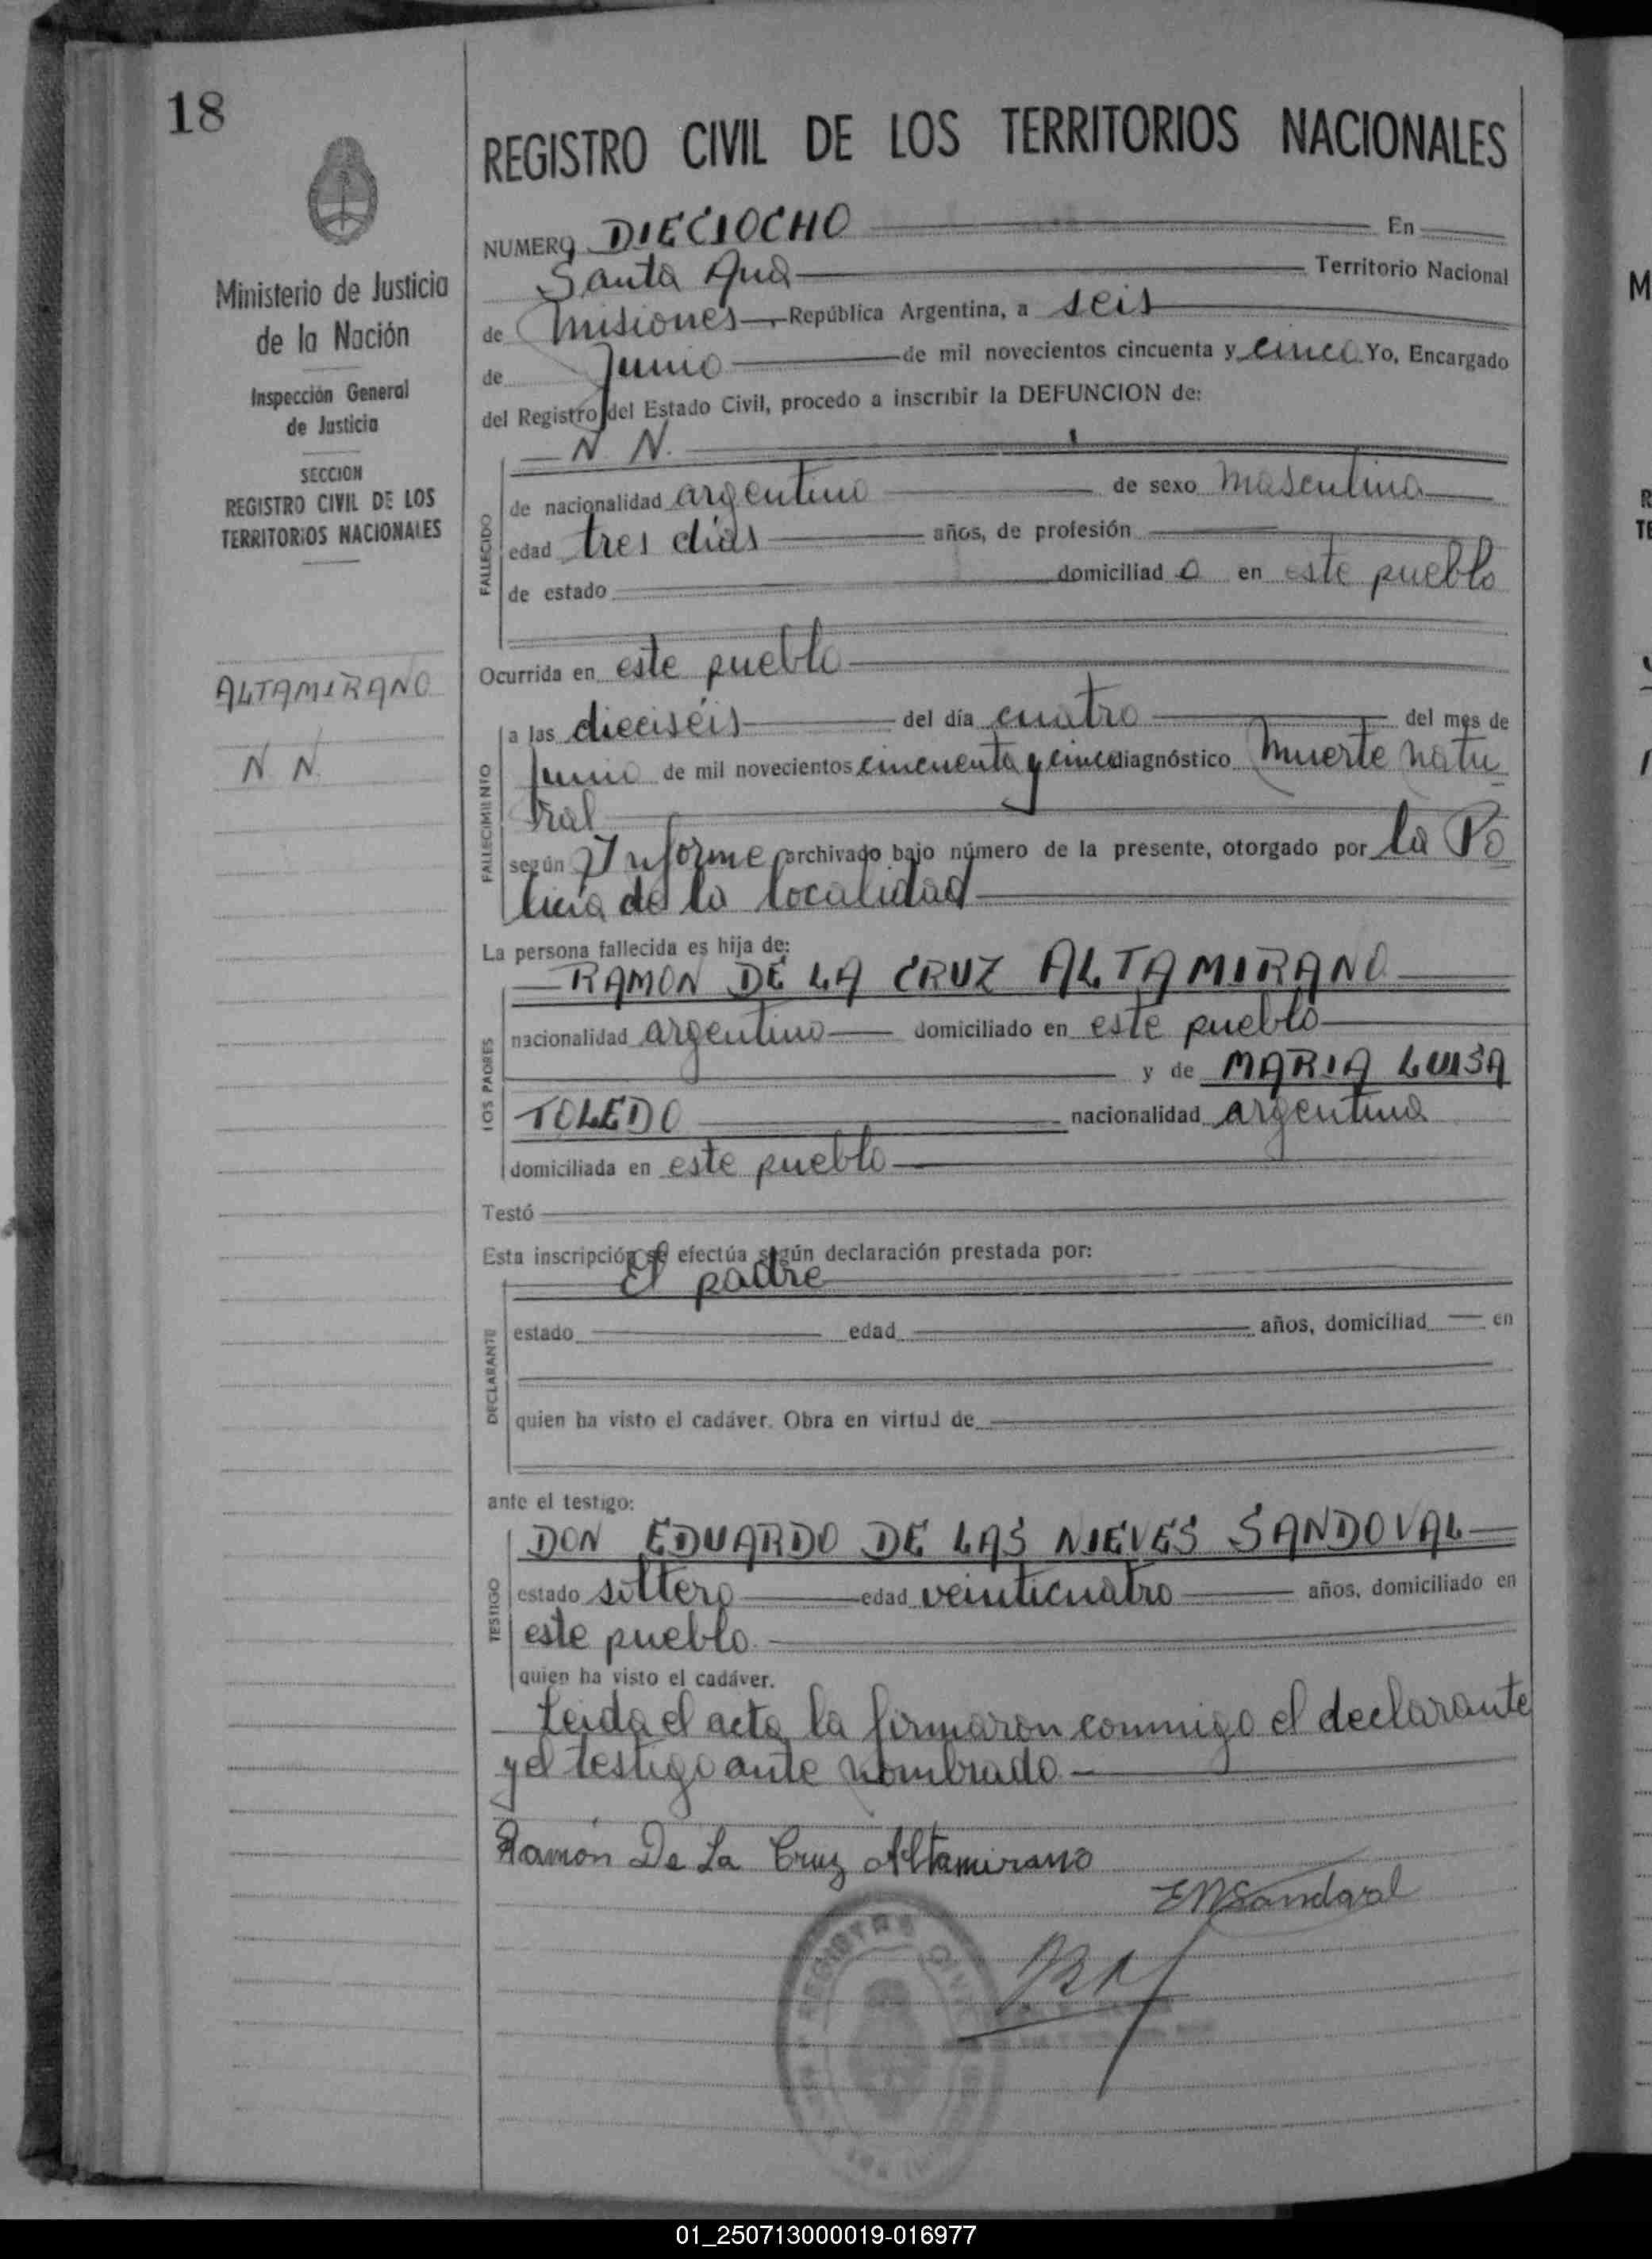 18
REGISTRO CIVIL DE LOS TERRITORIOS NACIONALES
Ministerio de Justicia
de la Nación
Inspección General
de Justicia
SECCION
REGISTRO CIVIL DE LOS
TERRITORIOS NACIONALES
ALTAMIRANO
N. N.
NUMERO DIECIOCHO En
Santa Ana Territorio Nacional
de Misiones, República Argentina, a seis
de Junio de mil novecientos cincuenta y cinco Yo, Encargado
del Registro del Estado Civil, procedo a inscribir la DEFUNCION de:
N. N.
FALLECIDO
de nacionalidad argentino de sexo masculino
edad tres días años, de profesión
de estado domiciliad o en este pueblo
Ocurrida en este pueblo
FALLECIMIENTO
a las dieciséis del día cuatro del mes de
Junio de mil novecientos cincuenta y cinco diagnóstico Muerte natu
ral
según Informe archivado bajo número de la presente, otorgado por la Po
licía de la localidad
La persona fallecida es hija de:
LOS PADRES
RAMON DE LA CRUZ ALTAMIRANO
nacionalidad argentino domiciliado en este pueblo
y de MARIA LUISA
TOLEDO nacionalidad argentina
domiciliada en este pueblo
Testó
Esta inscripción se efectúa según declaración prestada por:
DECLARANTE
El padre
estado edad años, domiciliad en
quien ha visto el cadáver. Obra en virtud de
ante el testigo:
TESTIGO
DON EDUARDO DE LAS NIEVES SANDOVAL
estado soltero edad veinticuatro años, domiciliado en
este pueblo
quien ha visto el cadáver.
Leida el acta la firmaron conmigo el declarante
y el testigo ante nombrado
Ramón De La Cruz Altamirano
ENSandoval
REGISTRO CIVIL
01_250713000019-016977